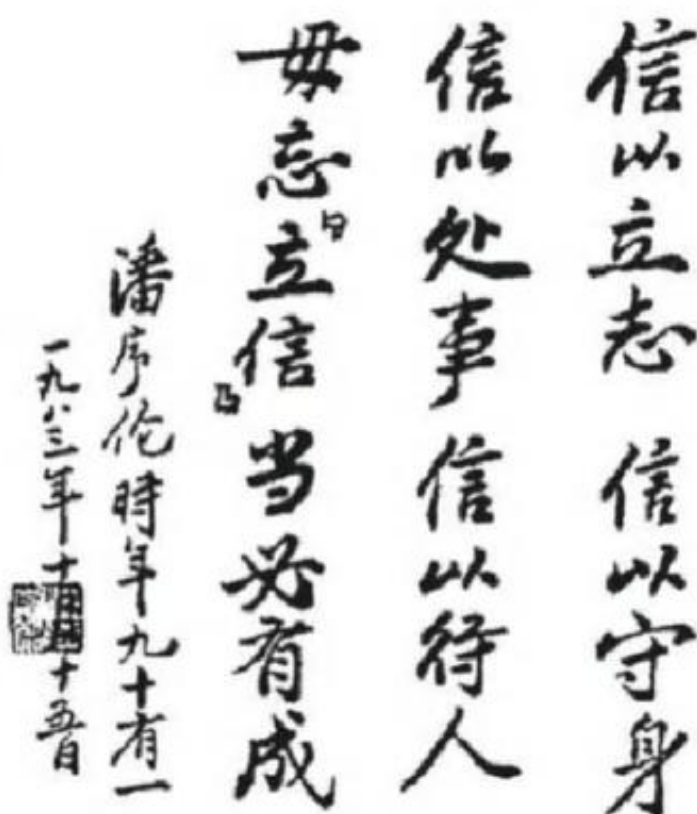 信以立志 信以守身
信以处事 信以待人
毋忘立信 当必有成
潘序伦時年九十有一
一九八三年十月二十五日